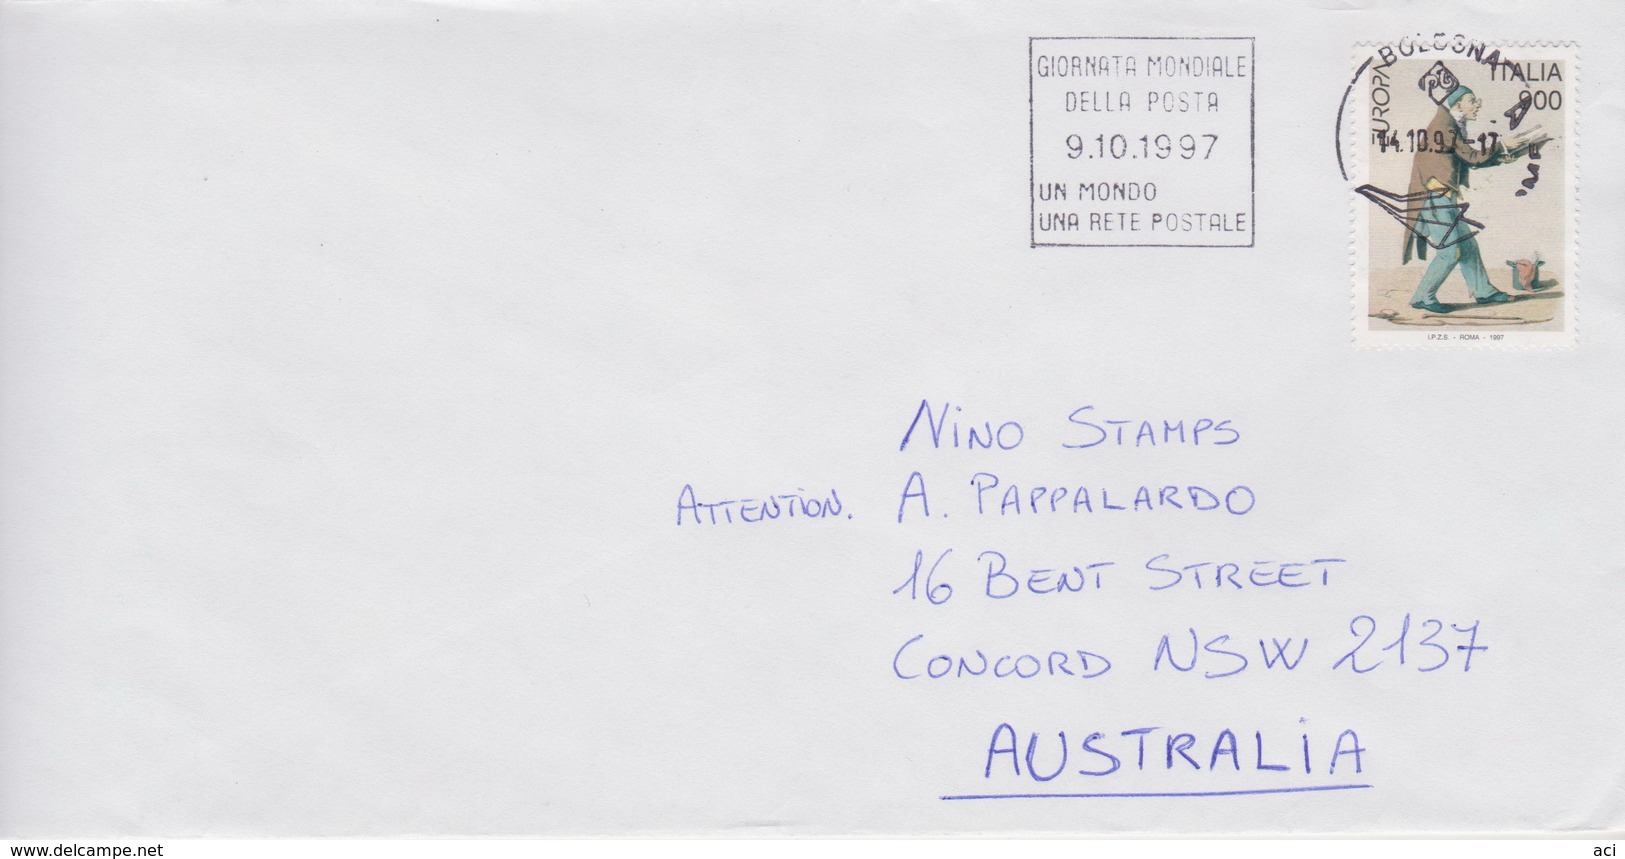 GIORNATA MONDIALE
DELLA POSTA
9.10.1997
UN MONDO
UNA RETE POSTALE
BOLOGNA
14.10.97-17
ITALIA
900
EUROPA
I.P.Z.S. - ROMA - 1997
NiNO STAMPS
ATTENTiON. A. PAPPALARDO
16 BENT STREET
CONCORD NSW 2137
AUSTRALiA
www.delcampe.net
aci